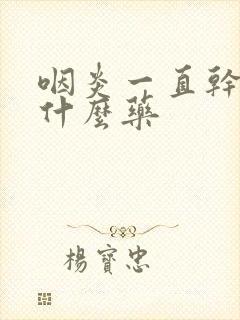 咽炎一直幹
什麼藥
楊寶忠